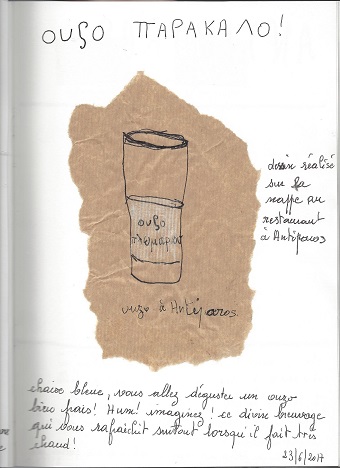 ουζο ΠΑΡΑΚΑΛΟ!
ουζο
πλωμαριου
ouzo à Antiparos
dessin réalisé
sur la
nappe au
restaurant
à Antiparos
chaise bleue, vous allez déguster un ouzo
bien frais! Hum! imaginez! ce divin breuvage
qui vous rafraichit surtout lorsqu'il fait très
chaud!
23/6/2017